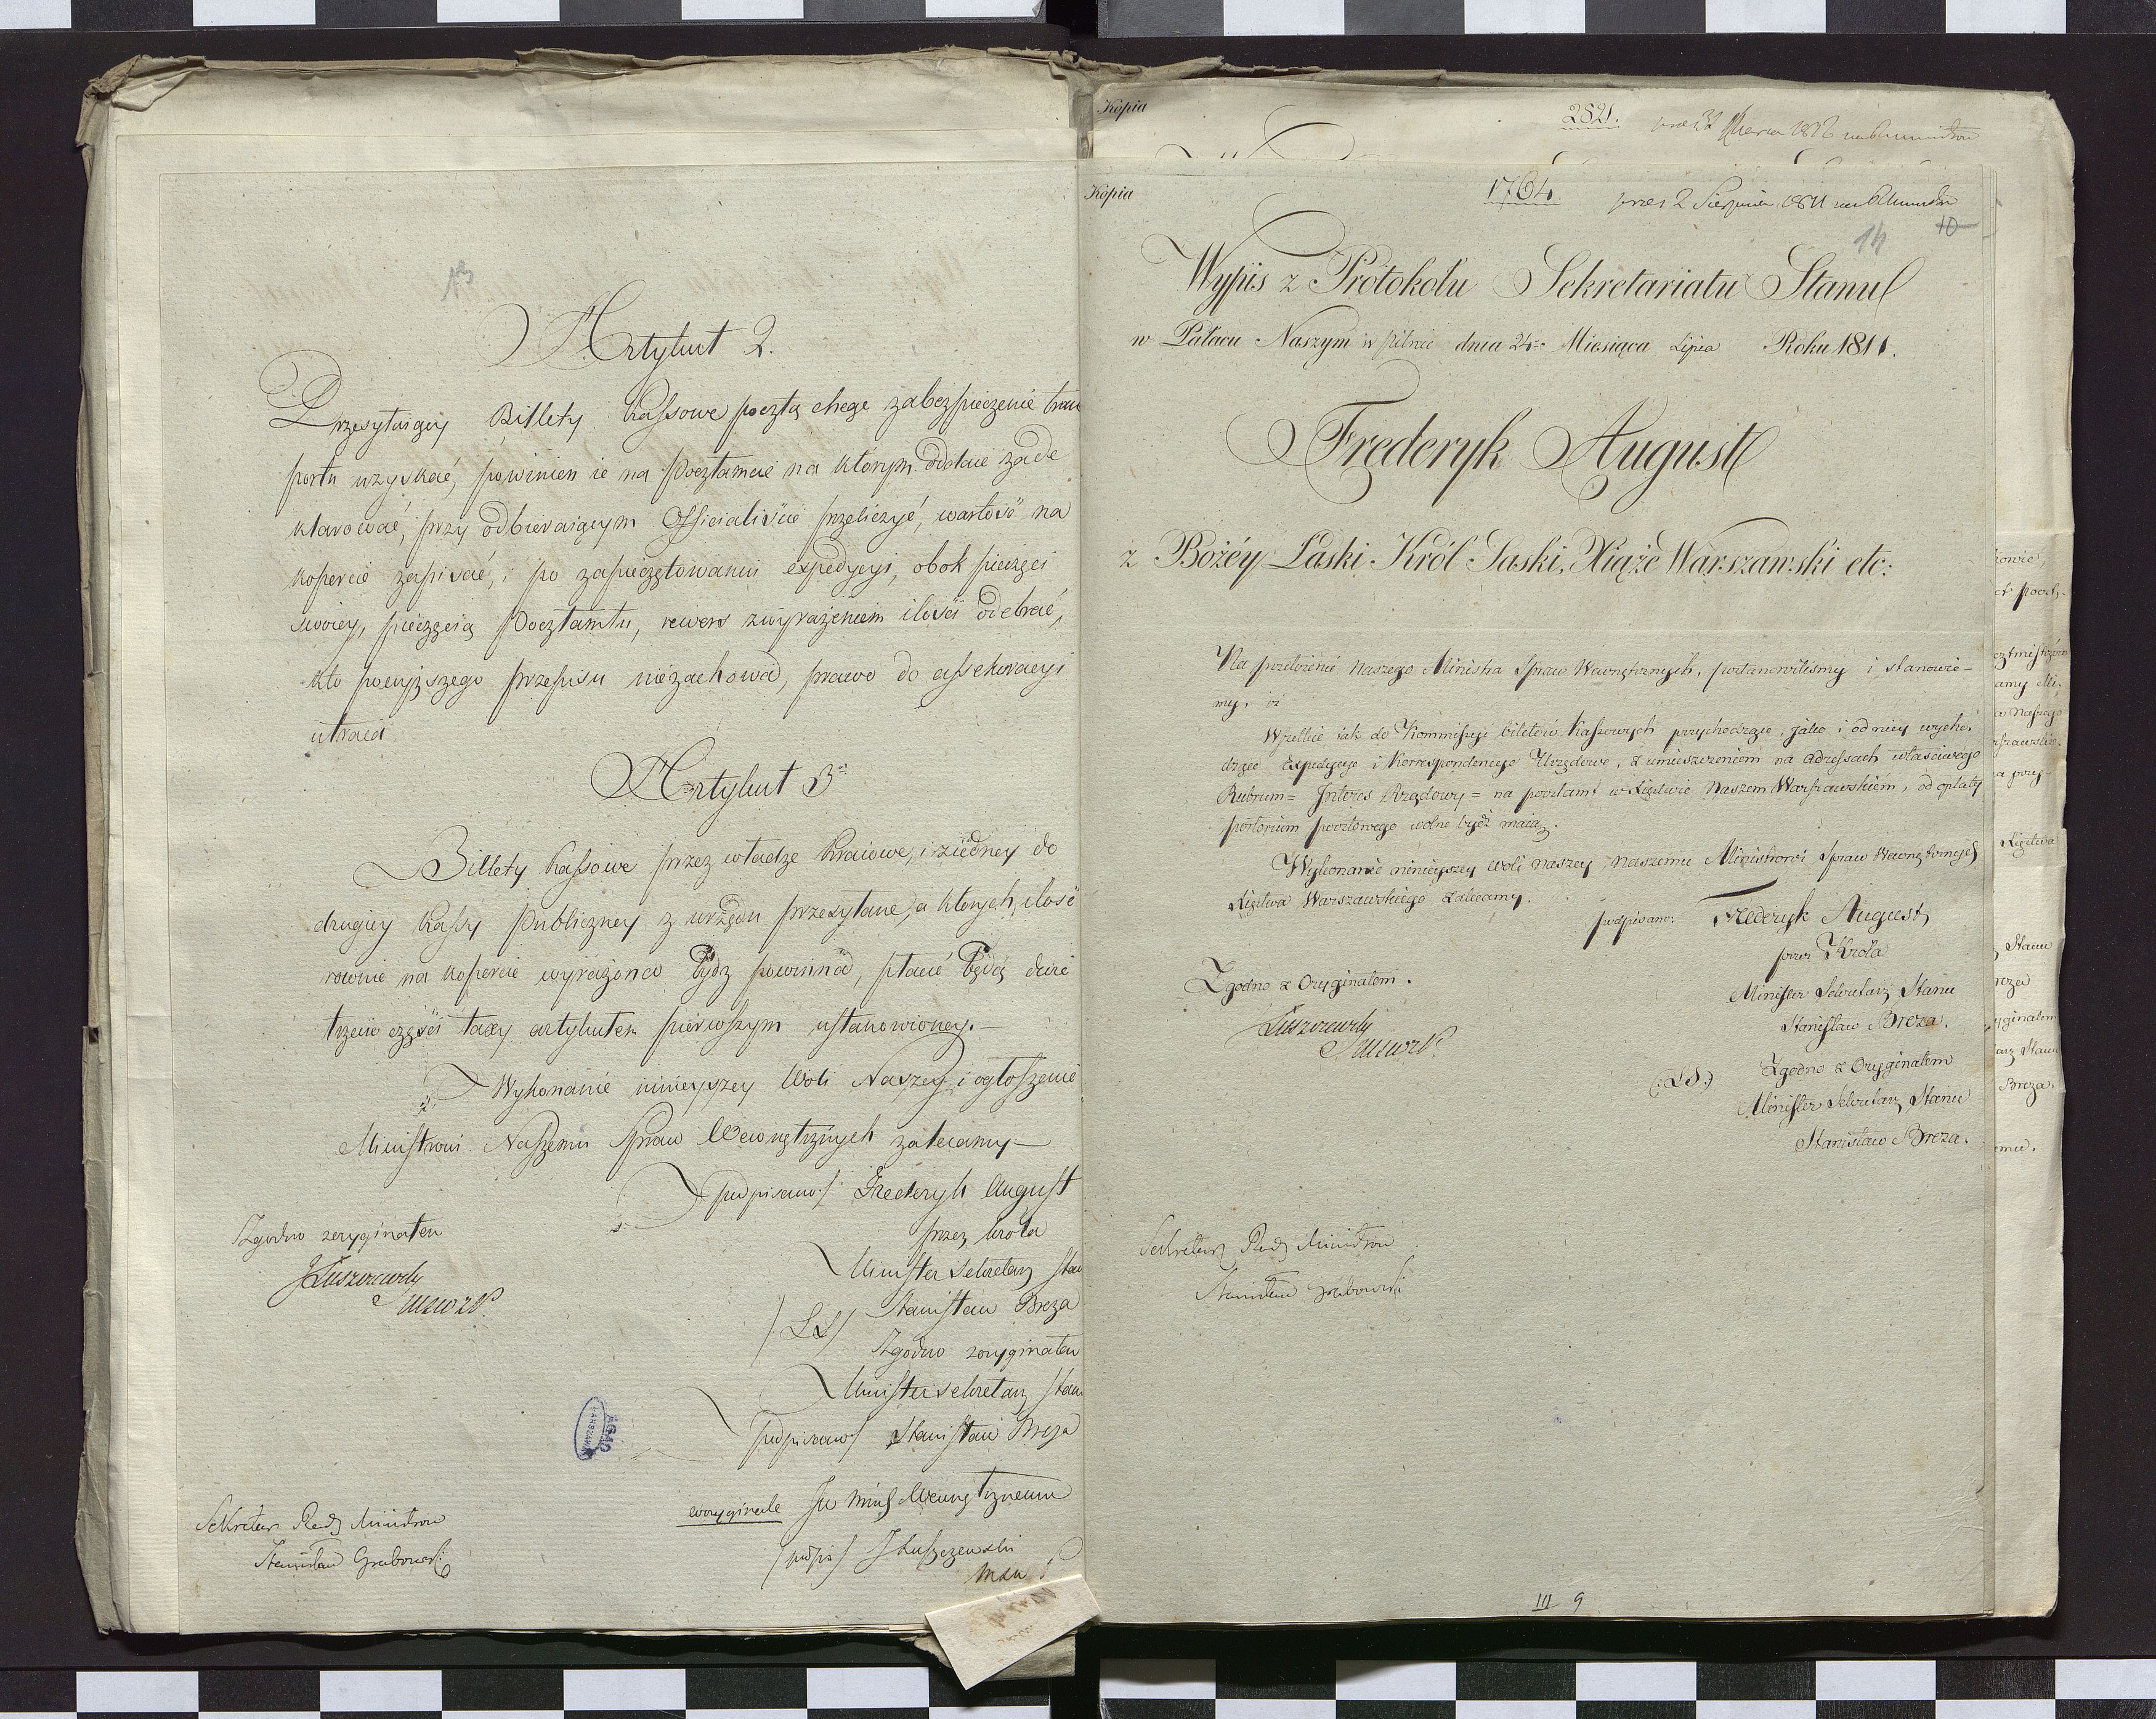 Artykuł 2.
Przesyłaiący Billety Kassowe pocztą chcąc zabezpieczenie tran
portu uzyskać, powinien ie na Pocztamcie na którym oddaie zade
klarować, przy odbieraiącym Officialiście przeliczyć, wartość na
kopercie zapisać, i po zapieczętowaniu expedycyi, obok pieczęci
swoiey, pieczęcią Pocztamtu, rewers z wyrażeniem ilości odebrać,
kto powyższego przepisu niezachowa, prawo do assekuracyi
utraca
Artykuł 3
Billety Kassowe przez władze Kraiowe, i z iedney do
drugiey Kassy Publiczney z urzędu przesyłane, a których ilość
rownie na kopercie wyrażona bydz powinna, płacić będą dwie
trzecie części taxy artykułem pierwszym ustanowioney.
Wykonanie ninieyszey Woli Naszey i ogłoszenie
Ministrowi Naszemu Spraw Wewnętrznych zalecamy
podpisano/ Frederyk August
przez Króla
Minister Sekretarz Stan
/LS/ Stanisław Breza
Zgodno z oryginałem
Minister Sekretarz Stan
podpisano/ Stanisław Breza
Zgodno z oryginałem
J Łuszczewski
w oryginale
/podpis/ J Łuszczewski
Sekretarz Rady Ministrów
Stanisław Grabowski
AGAD
WARSZAWA
Kópia
282.
Kópia
1764.
prez 2 Sierpnia 1811
14
10
Wypis z Protokołu Sekretariatu Stanu
w Pałacu Naszym w Pilnic dnia 24 Miesiąca Lipca Roku 1811.
Frederyk August
z Bożéy Łaski Król Saski, Xiąże Warszawski etc:
Na przełożenie Naszego Ministra Spraw Wewnętrznych, postanowiliśmy i stanowie-
my, iż
Wszelkie tak do Kommissyi biletów Kassowych przychodzące, jako i od niey wycho-
dzące Expedycye i Korrespondencye Urzędowe, z umieszczeniem na adressach właściwego
Rubrum = Interes Rządowy = na pocztamt w Xięztwie Naszem Warszawskiem, od opłaty
portorium pocztowego wolne bydź maią.
Wykonanie ninieyszey woli naszey, Naszemu Ministrowi Spraw Wewnętrznych
Xięztwa Warszawskiego zalecamy.
podpisano: Frederyk August,
przez Króla
Minister Sekretarz Stanu
Stanisław Breza.
Zgodno z Oryginałem.
Łuszczewski
(:LS:) Zgodno z Oryginałem
Minister Sekretarz Stanu
Stanisław Breza.
Sekretarz Rady Ministrów
Stanisław Grabowski
III 9